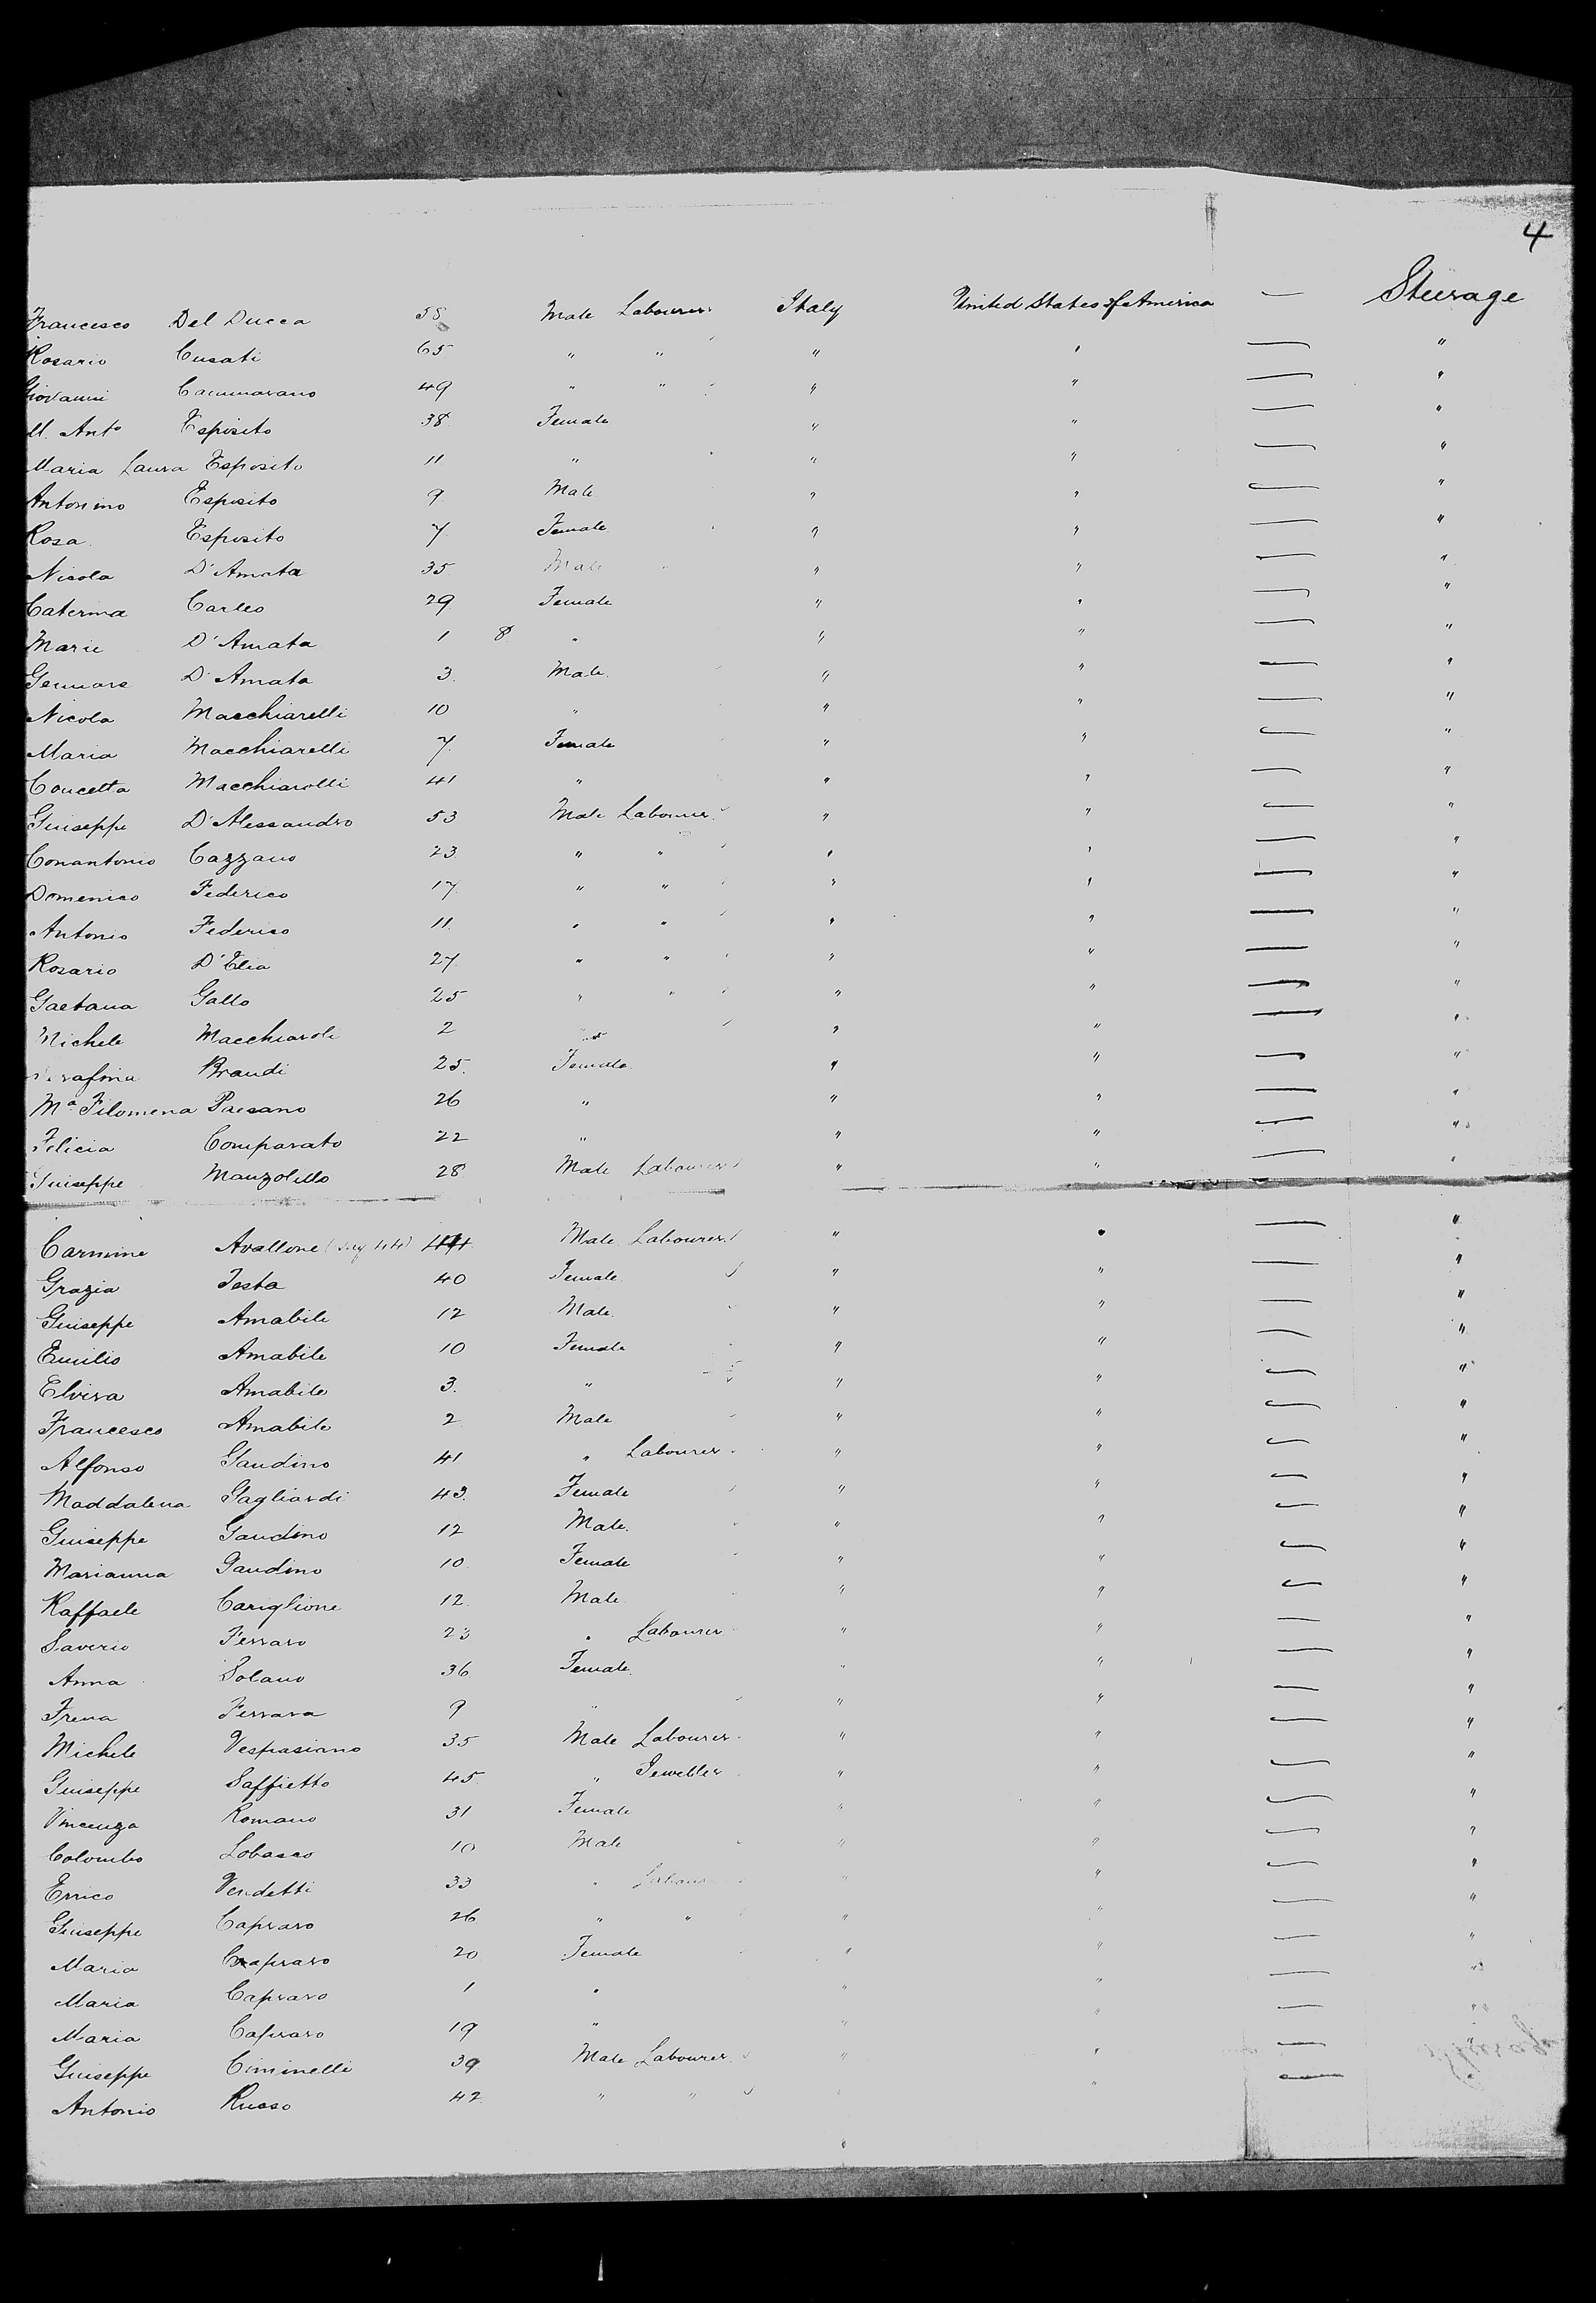 4
Francesco Del Ducca 58 Male Labourer Italy United States of America — Steerage
Rosario Cusati 65 " " " " — "
Giovanni Cammarano 49 " " " " — "
M. Anta Esposito 38 Female " " — "
Maria Laura Esposito 11 " " " — "
Antonino Esposito 9 Male " " — "
Rosa Esposito 7 Female " " — "
Nicola D'Amata 35 Male " " " — "
Caterina Carleo 29 Female " " — "
Marie D'Amata 1 8 " " " — "
Gennare D'Amata 3. Male. " " — "
Nicola Macchiarelli 10 " " " — "
Maria Macchiarelli 7. Female " " — "
Concetta Macchiarolli 41 " " " — "
Guiseppe D'Alessandro 53 Male Labourer " " — "
Conantonio Cazzano 23 " " " " — "
Domenico Federico 17 " " " " — "
Antonio Federico 11. " " " " — "
Rosario D'Elia 27 " " " " — "
Gaetana Gallo 25 " " " " — "
Michele Macchiaroli 2 " " " — "
Brandi 25. Female " " — "
Ma Filomena Paesano 26 " " " — "
Felicia Comparato 22 " " " — "
Guiseppe Manzolillo 28 Male Labourer " " — "
Carmine Avallone 44 Male Labourer " " — "
Grazia Testa 40 Female " " — "
Guiseppe Amabile 12 Male " " — "
Emilio Amabile 10 Female " " — "
Elvira Amabile 3. " " " — "
Francesco Amabile 2 Male " " — "
Alfonso Gaudino 41 " Labourer " " — "
Maddalena Gagliardi 43. Female " " — "
Guiseppe Gaudino 12 Male. " " — "
Marianna Gaudino 10 Female " " — "
Raffaele Cariglione 12 Male " " — "
Saverio Ferraro 23 " Labourer " " — "
Anna Solano 36 Female " " — "
Irena Ferrara 9 " " " — "
Michele Vespasiano 35 Male Labourer " " — "
Guiseppe Saffietto 45 " Jeweller " " — "
Vincenza Romano 31 Female " " — "
Colombo Lobasco 10 Male " " — "
Errico Vendetti 33 " Labourer " " — "
Guiseppe Capraro 26 " " " " — "
Maria Capraro 20 Female " " — "
Maria Capraro 1 " " " — "
Maria Capraro 19 " " " — "
Guiseppe Ciminelli 39 Male Labourer " " — "
Antonio Russo 42 " " " —